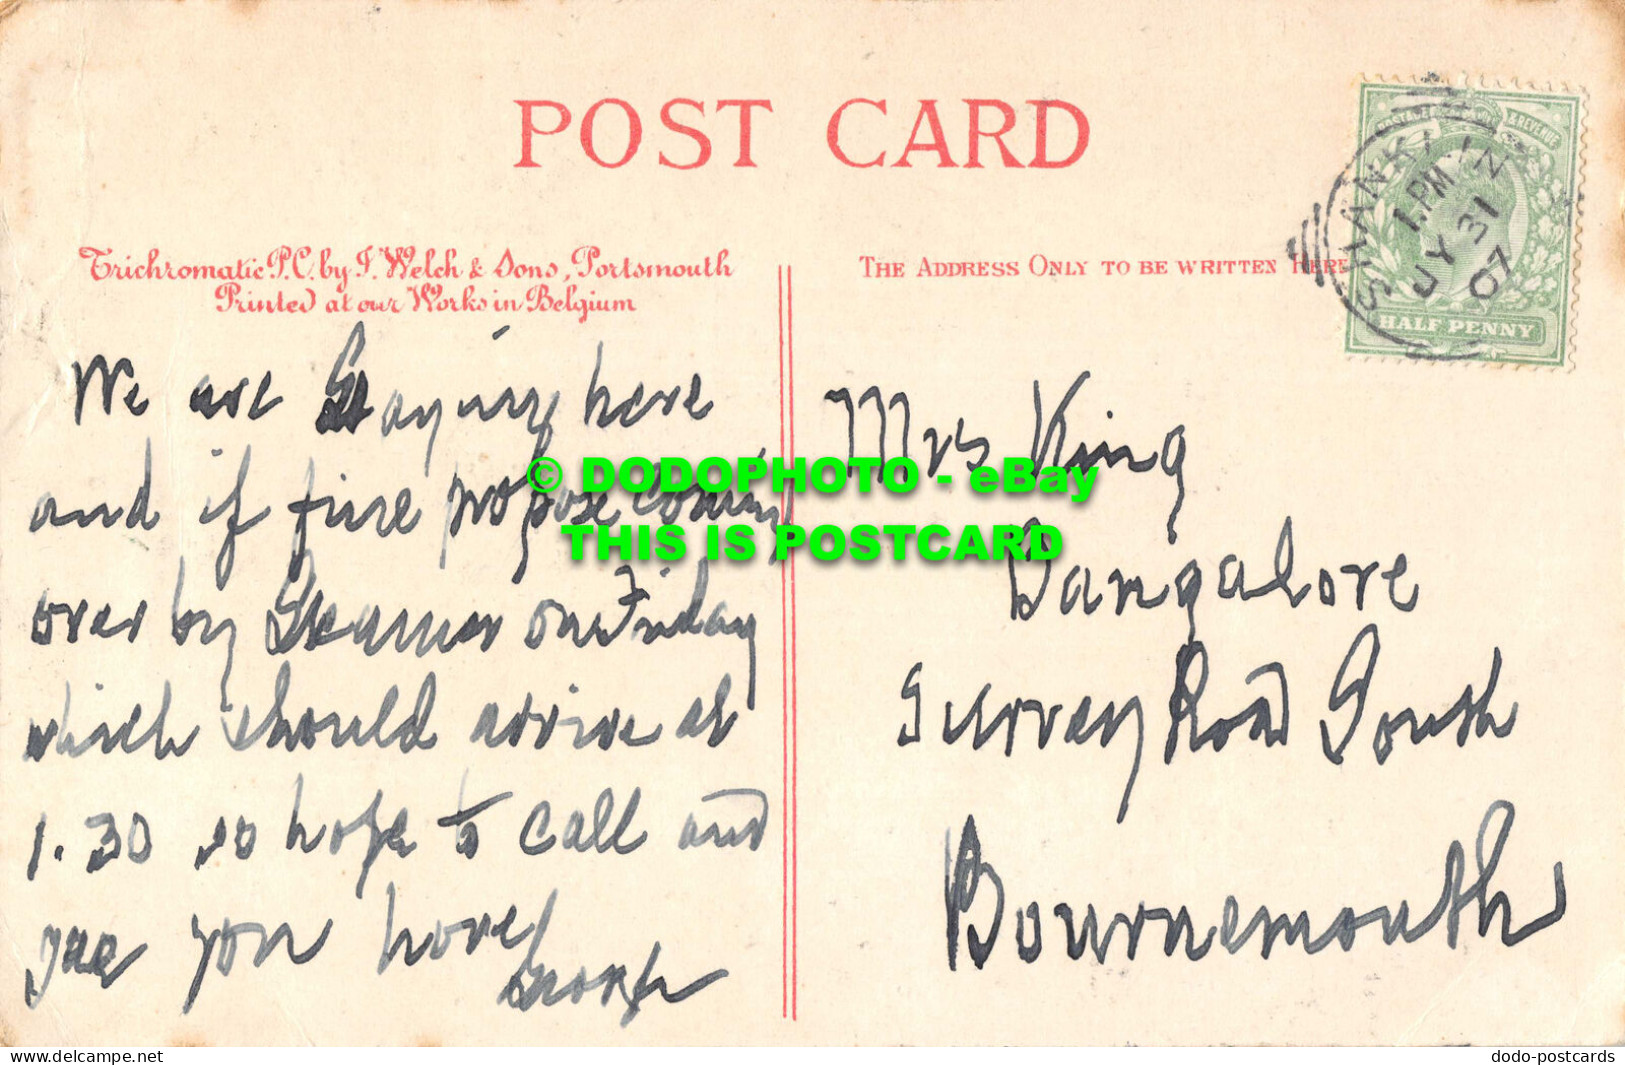 POST CARD
Trichromatic P.C. by F. Welch & Sons, Portsmouth
Printed at our Works in Belgium
THE ADDRESS ONLY TO BE WRITTEN HERE
POSTAGE & REVENUE
HALF PENNY
SHANKLIN
1.PM
JY 31
07
We are Staying here
and if fine propose coming
over by Steamer on Friday
which should arrive at
1.30 so hope to call and
see you
George
Mrs King
Bangalore
Surrey Road South
Bournemouth
© DODOPHOTO - eBay
THIS IS POSTCARD
Delcampe.net
dodo-postcards